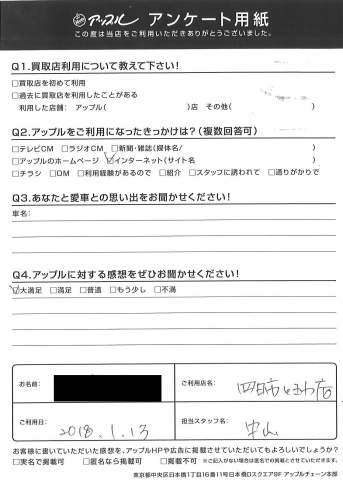 アップル アンケート用紙
この度は当店をご利用いただきありがとうございました。
Q1.買取店利用について教えて下さい!
□買取店を初めて利用
□過去に買取店を利用したことがある
利用した店舗: アップル( )店 その他( )
Q2.アップルをご利用になったきっかけは?(複数回答可)
□テレビCM □ラジオCM □新聞・雑誌(媒体名/ )
□アップルのホームページ ☑インターネット(サイト名 )
□チラシ □DM □利用経験があるので □紹介 □スタッフに誘われて □通りがかりで
Q3.あなたと愛車との思い出をお聞かせください!
車名:
Q4.アップルに対する感想をぜひお聞かせください!
☑大満足 □満足 □普通 □もう少し □不満
お名前:
ご利用店名: 四日市ときわ店
ご利用日: 2018.1.13
担当スタッフ名: 中山
お客様に書いていただいた感想を、アップルHPや広告に掲載させていただいてもよろしいでしょうか?
□実名で掲載可 □匿名なら掲載可 □掲載不可 ※ご記入がない場合は匿名での掲載とさせていただきます。
東京都中央区日本橋1丁目16番11号日本橋Dスクエア9F アップルチェーン本部